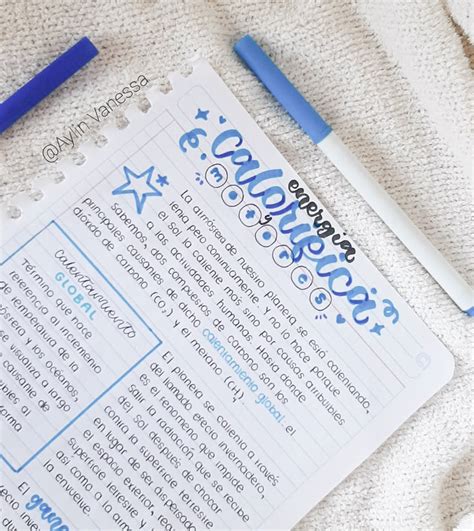 @Aylin Vanessa
energía
calorífica
y
motores
La atmósfera de nuestro planeta se está calentando,
lenta pero continuamente, y no lo hace porque
el sol la caliente más sino por causas atribuibles
a las actividades humanas. Hasta donde
sabemos, dos compuestos de carbono son los
principales causantes de dicho calentamiento global, el
dióxido de carbono (CO₂) y el metano (CH₄)
El planeta se calienta a través
del llamado efecto invernadero,
es el fenómeno que impide
salir la radiación que se recibe
del sol después de chocar
contra la superficie terrestre y
en lugar de ser dispersada
el espacio exterior,
superficie terrestre
así como a la
la envuelve
calentamiento
GLOBAL
Término que hace
referencia al incremento
de temperatura de la
y los océanos,
a largo
de